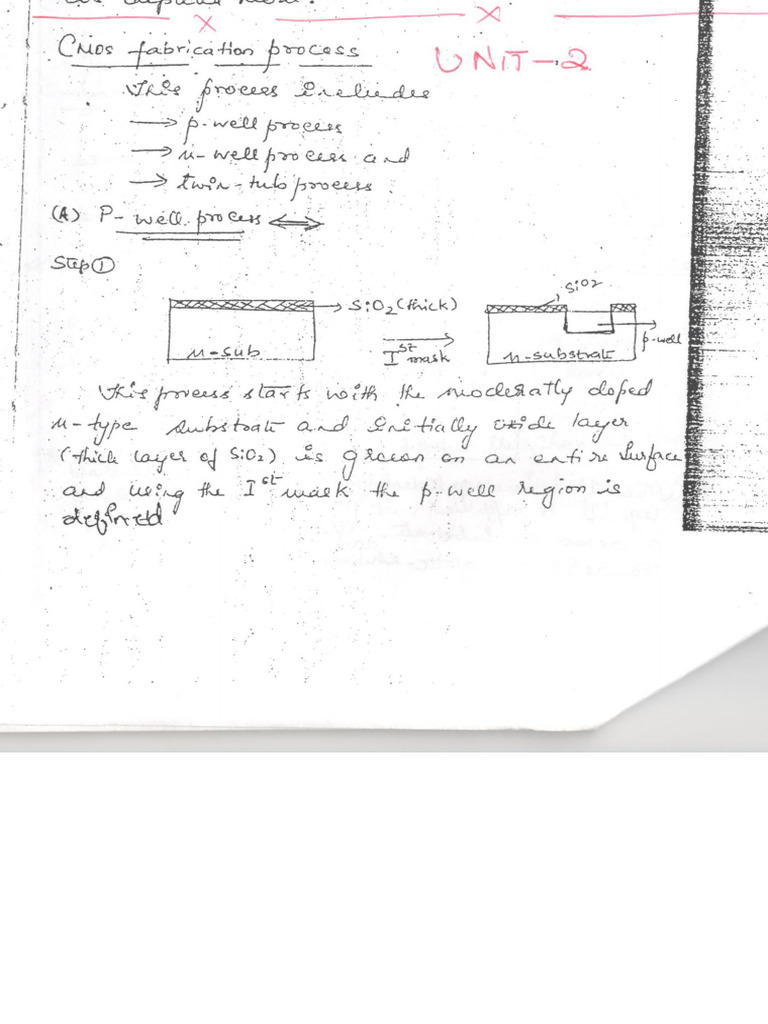 CMOS fabrication process
UNIT-2
This process includes
→ p-well process
→ n-well process and
→ twin-tub process.
(A) P-well process ⟷
Step ①
SiO2 (thick)
n-sub
Ist mask
SiO2
p-well
n-substrate
This process starts with the moderatly doped
n-type substrate and initially oxide layer
(thick layer of SiO2) is grown on an entire surface
and using the Ist mask the p-well region is
defined